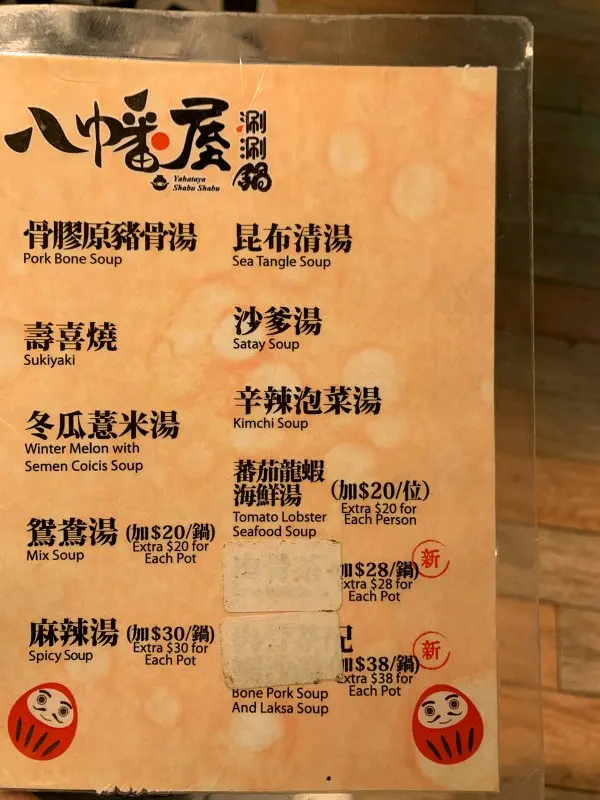 八幡屋
涮涮鍋
Yahataya
Shabu Shabu
骨膠原豬骨湯
Pork Bone Soup
壽喜燒
Sukiyaki
冬瓜薏米湯
Winter Melon with
Semen Coicis Soup
鴛鴦湯 (加$20/鍋)
Mix Soup
Extra $20 for
Each Pot
麻辣湯 (加$30/鍋)
Spicy Soup
Extra $30 for
Each Pot
昆布清湯
Sea Tangle Soup
沙爹湯
Satay Soup
辛辣泡菜湯
Kimchi Soup
蕃茄龍蝦
海鮮湯 (加$20/位)
Tomato Lobster
Seafood Soup
Extra $20 for
Each Person
$28/鍋) 新
$28 for
Each Pot
$38/鍋) 新
$38 for
Each Pot
Bone Pork Soup
And Laksa Soup